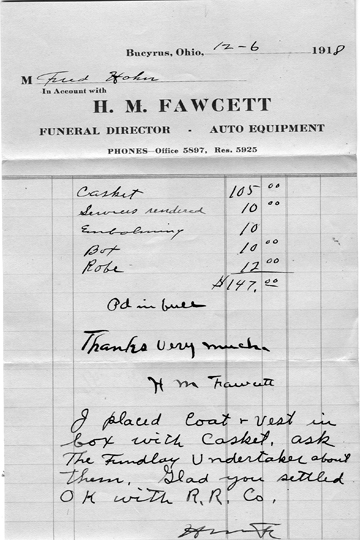 Bucyrus, Ohio, 12-6 1918
M Fred Hohn
In Account with
H. M. FAWCETT
FUNERAL DIRECTOR - AUTO EQUIPMENT
PHONES—Office 5897, Res. 5925
Casket 105 00
Services rendered 10 00
Embalming 10
Box 10 00
Robe 12 00
$147.00
Pd in full
Thanks Very much.
H M Fawcett
I placed Coat + Vest in
box with Casket, ask
The Findlay Undertaker about
them, Glad you settled
OK with R.R. Co.